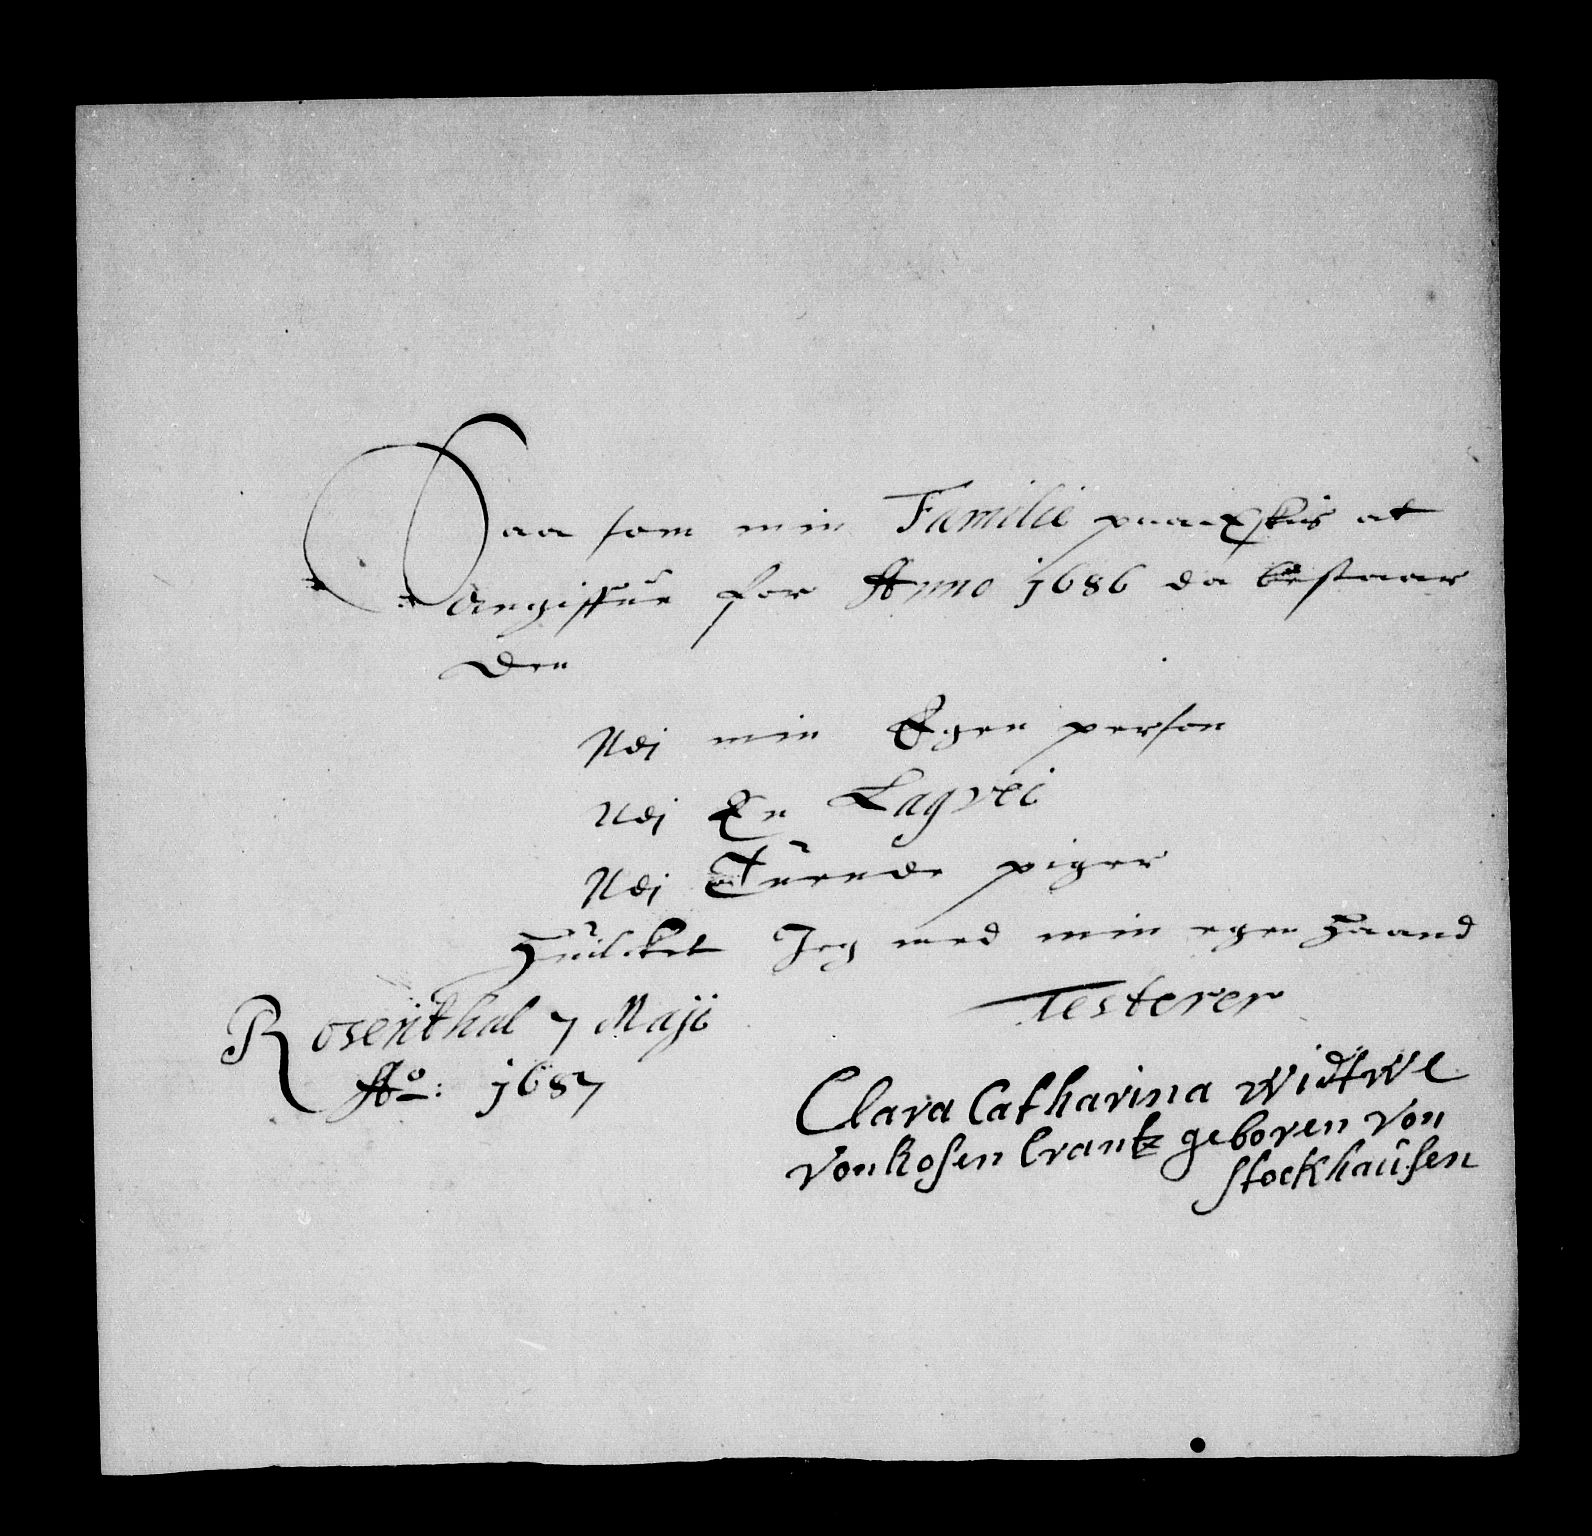 Saa som min Familie paaæskis at
Angiffue for Anno 1686 da bestaar
den
Udj min Egen person
Udj En Laqvei
Udj Tuende piger
Huilcket Jeg med min egen Haand
Testerer
Rosenthal 7 Maji
Ao: 1687
Clara Catharina Widtwe
von Rosen Crantz geboren von
Stockhausen